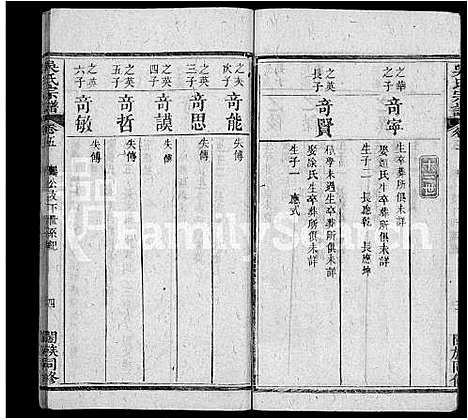 吳氏宗譜
十三世
之華
之子
奇寧
生卒葬所俱未詳
娶妣氏生卒葬所俱未詳
生子二 長應乾 長應坤
之英
長子
奇賢
從學未遇生卒葬所俱未詳
娶涂氏生卒葬所俱未詳
生子一 應式
之英
次子
奇能
失傳
之英
三子
奇思
失傳
之英
四子
奇謨
失傳
之英
五子
奇哲
失傳
之英
六子
奇敏
失傳
吳氏宗譜
卷五
公政下
四
闔族同修
闔族同修
FamilySearch